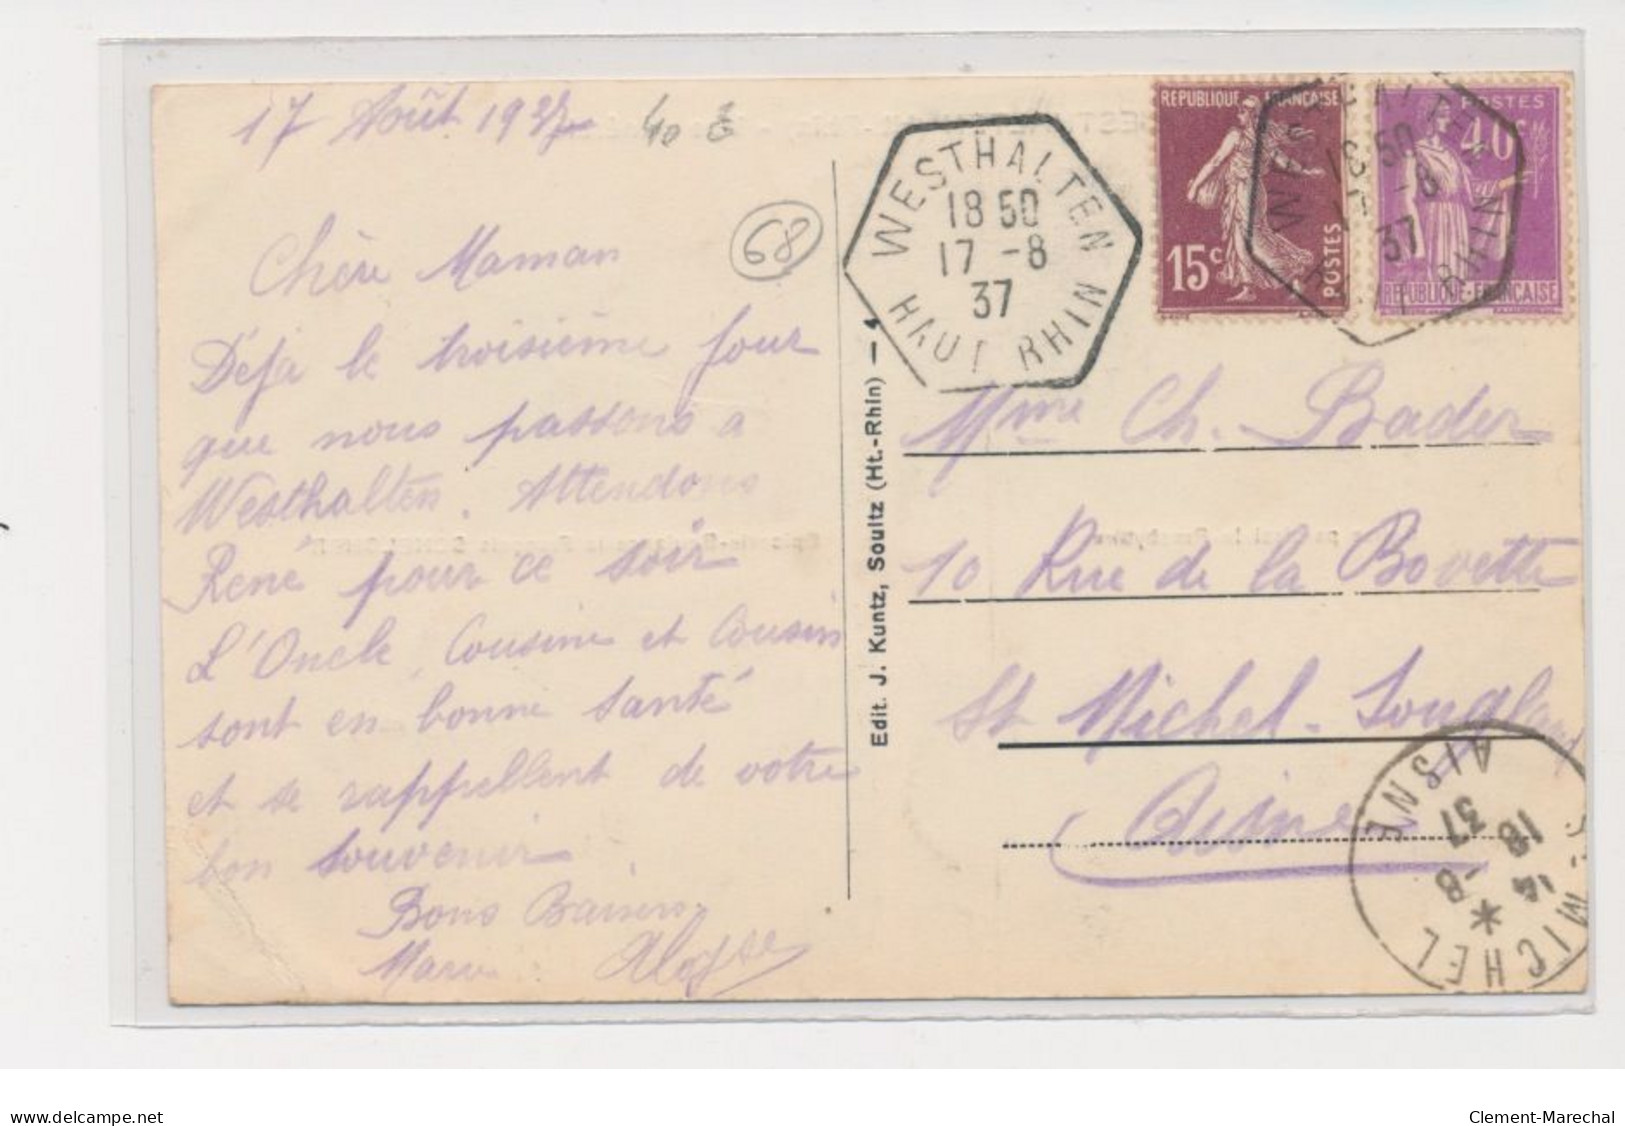 17 Août 1937
40 E
68
Chère Maman
Déja le troisième jour
que nous passons a
Westhalten. Attendons
René pour ce soir
L'Oncle, Cousine et Cousin
sont en bonne santé
et se rappellent de votre
bon souvenir
Bons Baisers
Aloyse
Edit. J. Kuntz, Soultz (Ht.-Rhin) — 4
WESTHALTEN
18 50
17 -8
37
HAUT RHIN
REPUBLIQUE FRANÇAISE
15c
POSTES
POSTES
40c
REPUBLIQUE-FRANÇAISE
WESTHALTEN
18 50
17 -8
37
HAUT RHIN
Mme Ch. Bader
10 Rue de la Bovette
St Michel-Sougland
Aisne
ST MICHEL
14
18 -8
37
AISNE
www.delcampe.net
Clement-Marechal